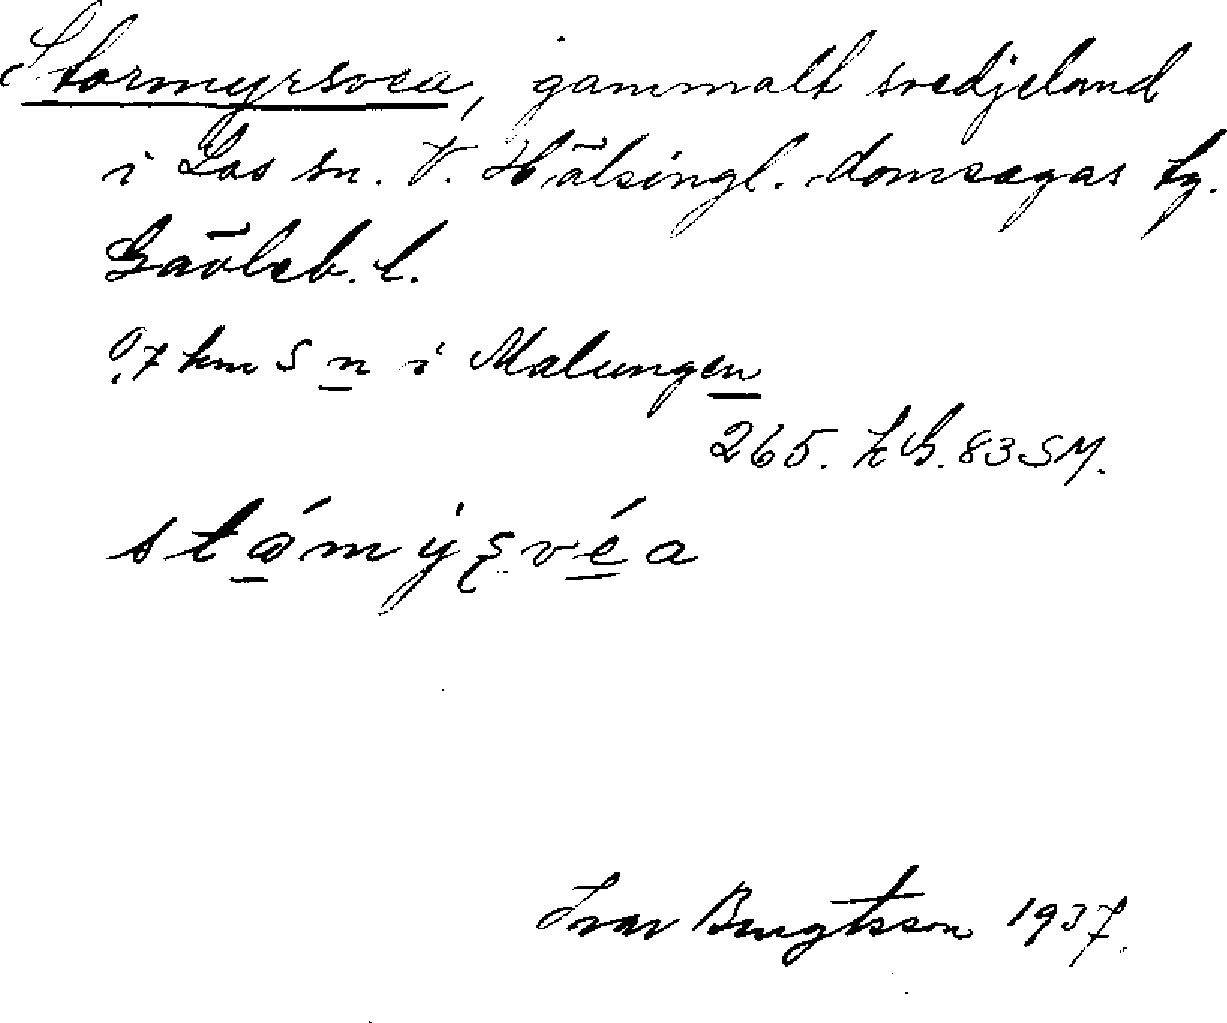 Stormyrsvea, gammalt svedjeland
i Los sn. V. Hälsingl. domsagas tg.
Gävleb. l.
0,7 km S n i Malungen
265. Kb. 83 SM.
Ivar Bengtsson 1937.